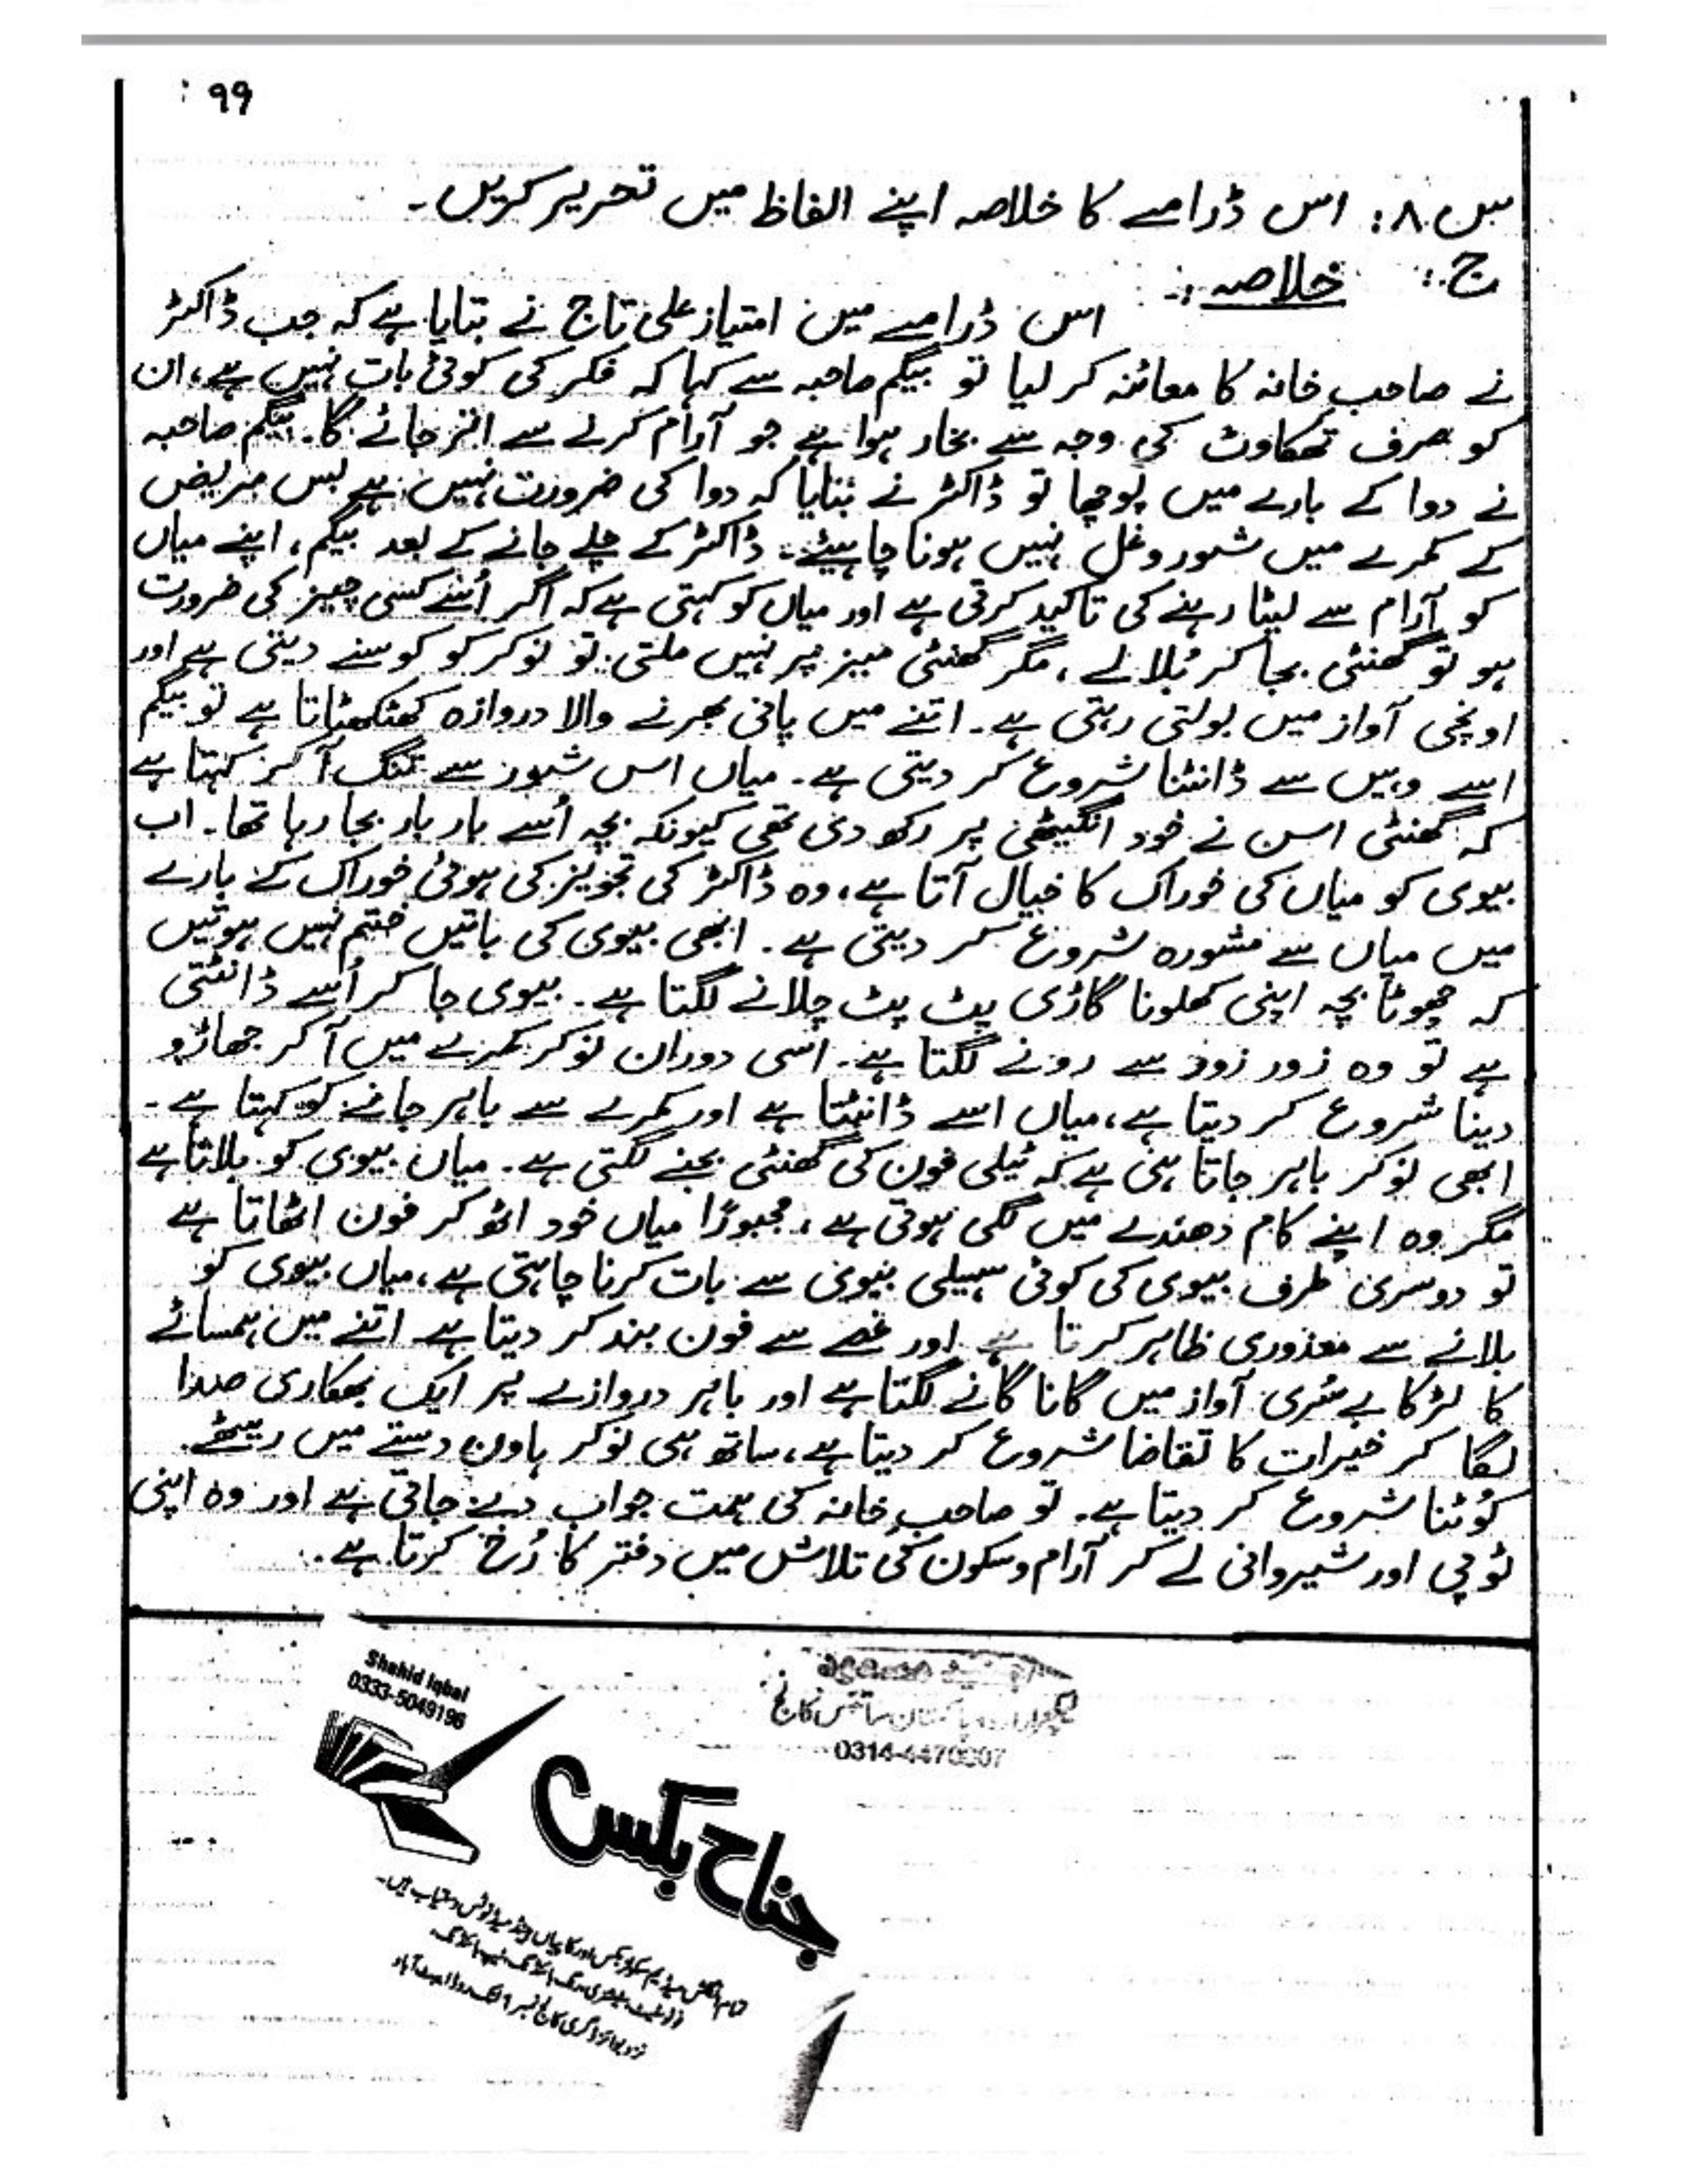 ۹۹
س ۸: اس ڈرامے کا خلاصہ اپنے الفاظ میں تحریر کریں۔
ج: خلاصہ:۔
اس ڈرامے میں امتیاز علی تاج نے بتایا ہے کہ جب ڈاکٹر
نے صاحب خانہ کا معائنہ کر لیا تو بیگم صاحبہ سے کہا کہ فکر کی کوئی بات نہیں ہے، ان
کو صرف تھکاوٹ کی وجہ سے بخار ہوا ہے جو آرام کرنے سے اتر جائے گا۔ بیگم صاحبہ
نے دوا کے بارے میں پوچھا تو ڈاکٹر نے بتایا کہ دوا کی ضرورت نہیں ہے بس مریض
کے کمرے میں شور و غل نہیں ہونا چاہیئے۔ ڈاکٹر کے چلے جانے کے بعد بیگم، اپنے میاں
کو آرام سے لیٹا رہنے کی تاکید کرتی ہے اور میاں کو کہتی ہے کہ اگر اُسے کسی چیز کی ضرورت
ہو تو گھنٹی بجا کر بُلا لے، مگر گھنٹی میز پر نہیں ملتی تو نوکر کو کوسنے دیتی ہے اور
اونچی آواز میں بولتی رہتی ہے۔ اتنے میں پانی بھرنے والا دروازہ کھٹکھٹاتا ہے تو بیگم
اسے وہیں سے ڈانٹنا شروع کر دیتی ہے۔ میاں اس شور سے تنگ آ کر کہتا ہے
کہ گھنٹی اس نے خود انگیٹھی پر رکھ دی تھی کیونکہ بچہ اُسے بار بار بجا رہا تھا۔ اب
بیوی کو میاں کی خوراک کا خیال آتا ہے، وہ ڈاکٹر کی تجویز کی ہوئی خوراک کے بارے
میں میاں سے مشورہ شروع کر دیتی ہے۔ ابھی بیوی کی باتیں ختم نہیں ہوتیں
کہ چھوٹا بچہ اپنی کھلونا گاڑی پٹ پٹ چلانے لگتا ہے۔ بیوی جا کر اُسے ڈانٹتی
ہے تو وہ زور زور سے رونے لگتا ہے۔ اسی دوران نوکر کمرے میں آ کر جھاڑو
دینا شروع کر دیتا ہے، میاں اسے ڈانٹتا ہے اور کمرے سے باہر جانے کو کہتا ہے۔
ابھی نوکر باہر جاتا ہی ہے کہ ٹیلی فون کی گھنٹی بجنے لگتی ہے۔ میاں بیوی کو بلاتا ہے
مگر وہ اپنے کام دھندے میں لگی ہوتی ہے، مجبوراً میاں خود اٹھ کر فون اٹھاتا ہے
تو دوسری طرف بیوی کی کوئی سہیلی بیوی سے بات کرنا چاہتی ہے، میاں بیوی کو
بلانے سے معذوری ظاہر کرتا ہے اور غصے سے فون بند کر دیتا ہے اتنے میں ہمسائے
کا لڑکا بے سُری آواز میں گانا گانے لگتا ہے اور باہر دروازے پر ایک بھکاری صدا
لگا کر خیرات کا تقاضا شروع کر دیتا ہے، ساتھ ہی نوکر ہاون دستے میں ریٹھے
کُوٹنا شروع کر دیتا ہے۔ تو صاحب خانہ کی ہمت جواب دے جاتی ہے اور وہ اپنی
ٹوپی اور شیروانی لے کر آرام و سکون کی تلاش میں دفتر کا رُخ کرتا ہے۔
Shahid Iqbal
0333-5049196
سائنس کالج
جناح بکس